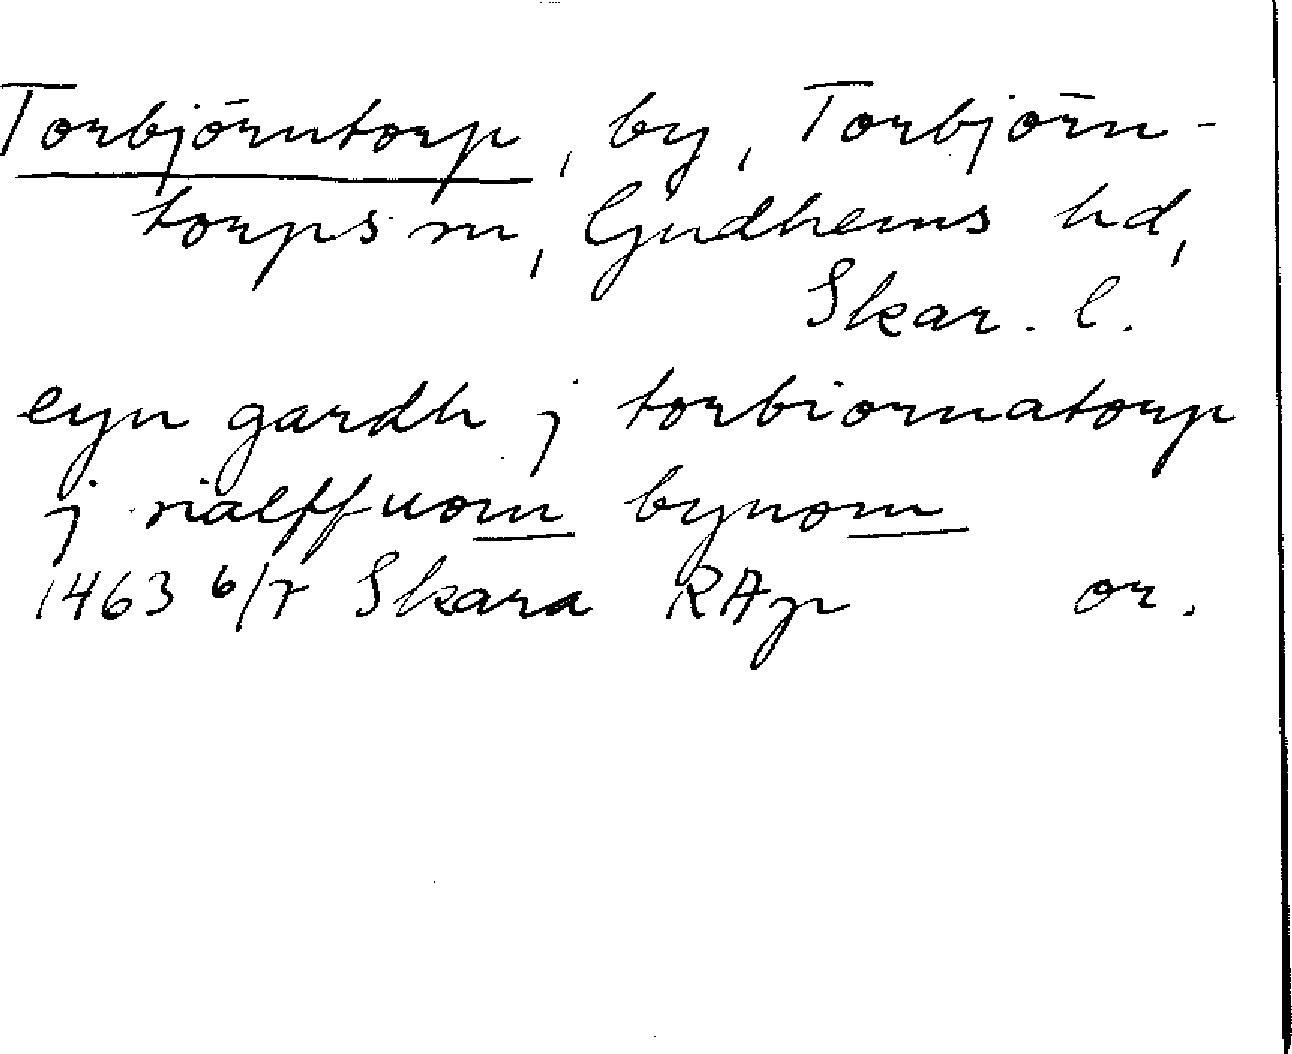 Torbjörntorp, by, Torbjörn-
torps sn, Gudhems hd,
Skar. l.
eyn gardh j torbiornatorp
j siælffuom bynom
1463 6/7 Skara RAp or.